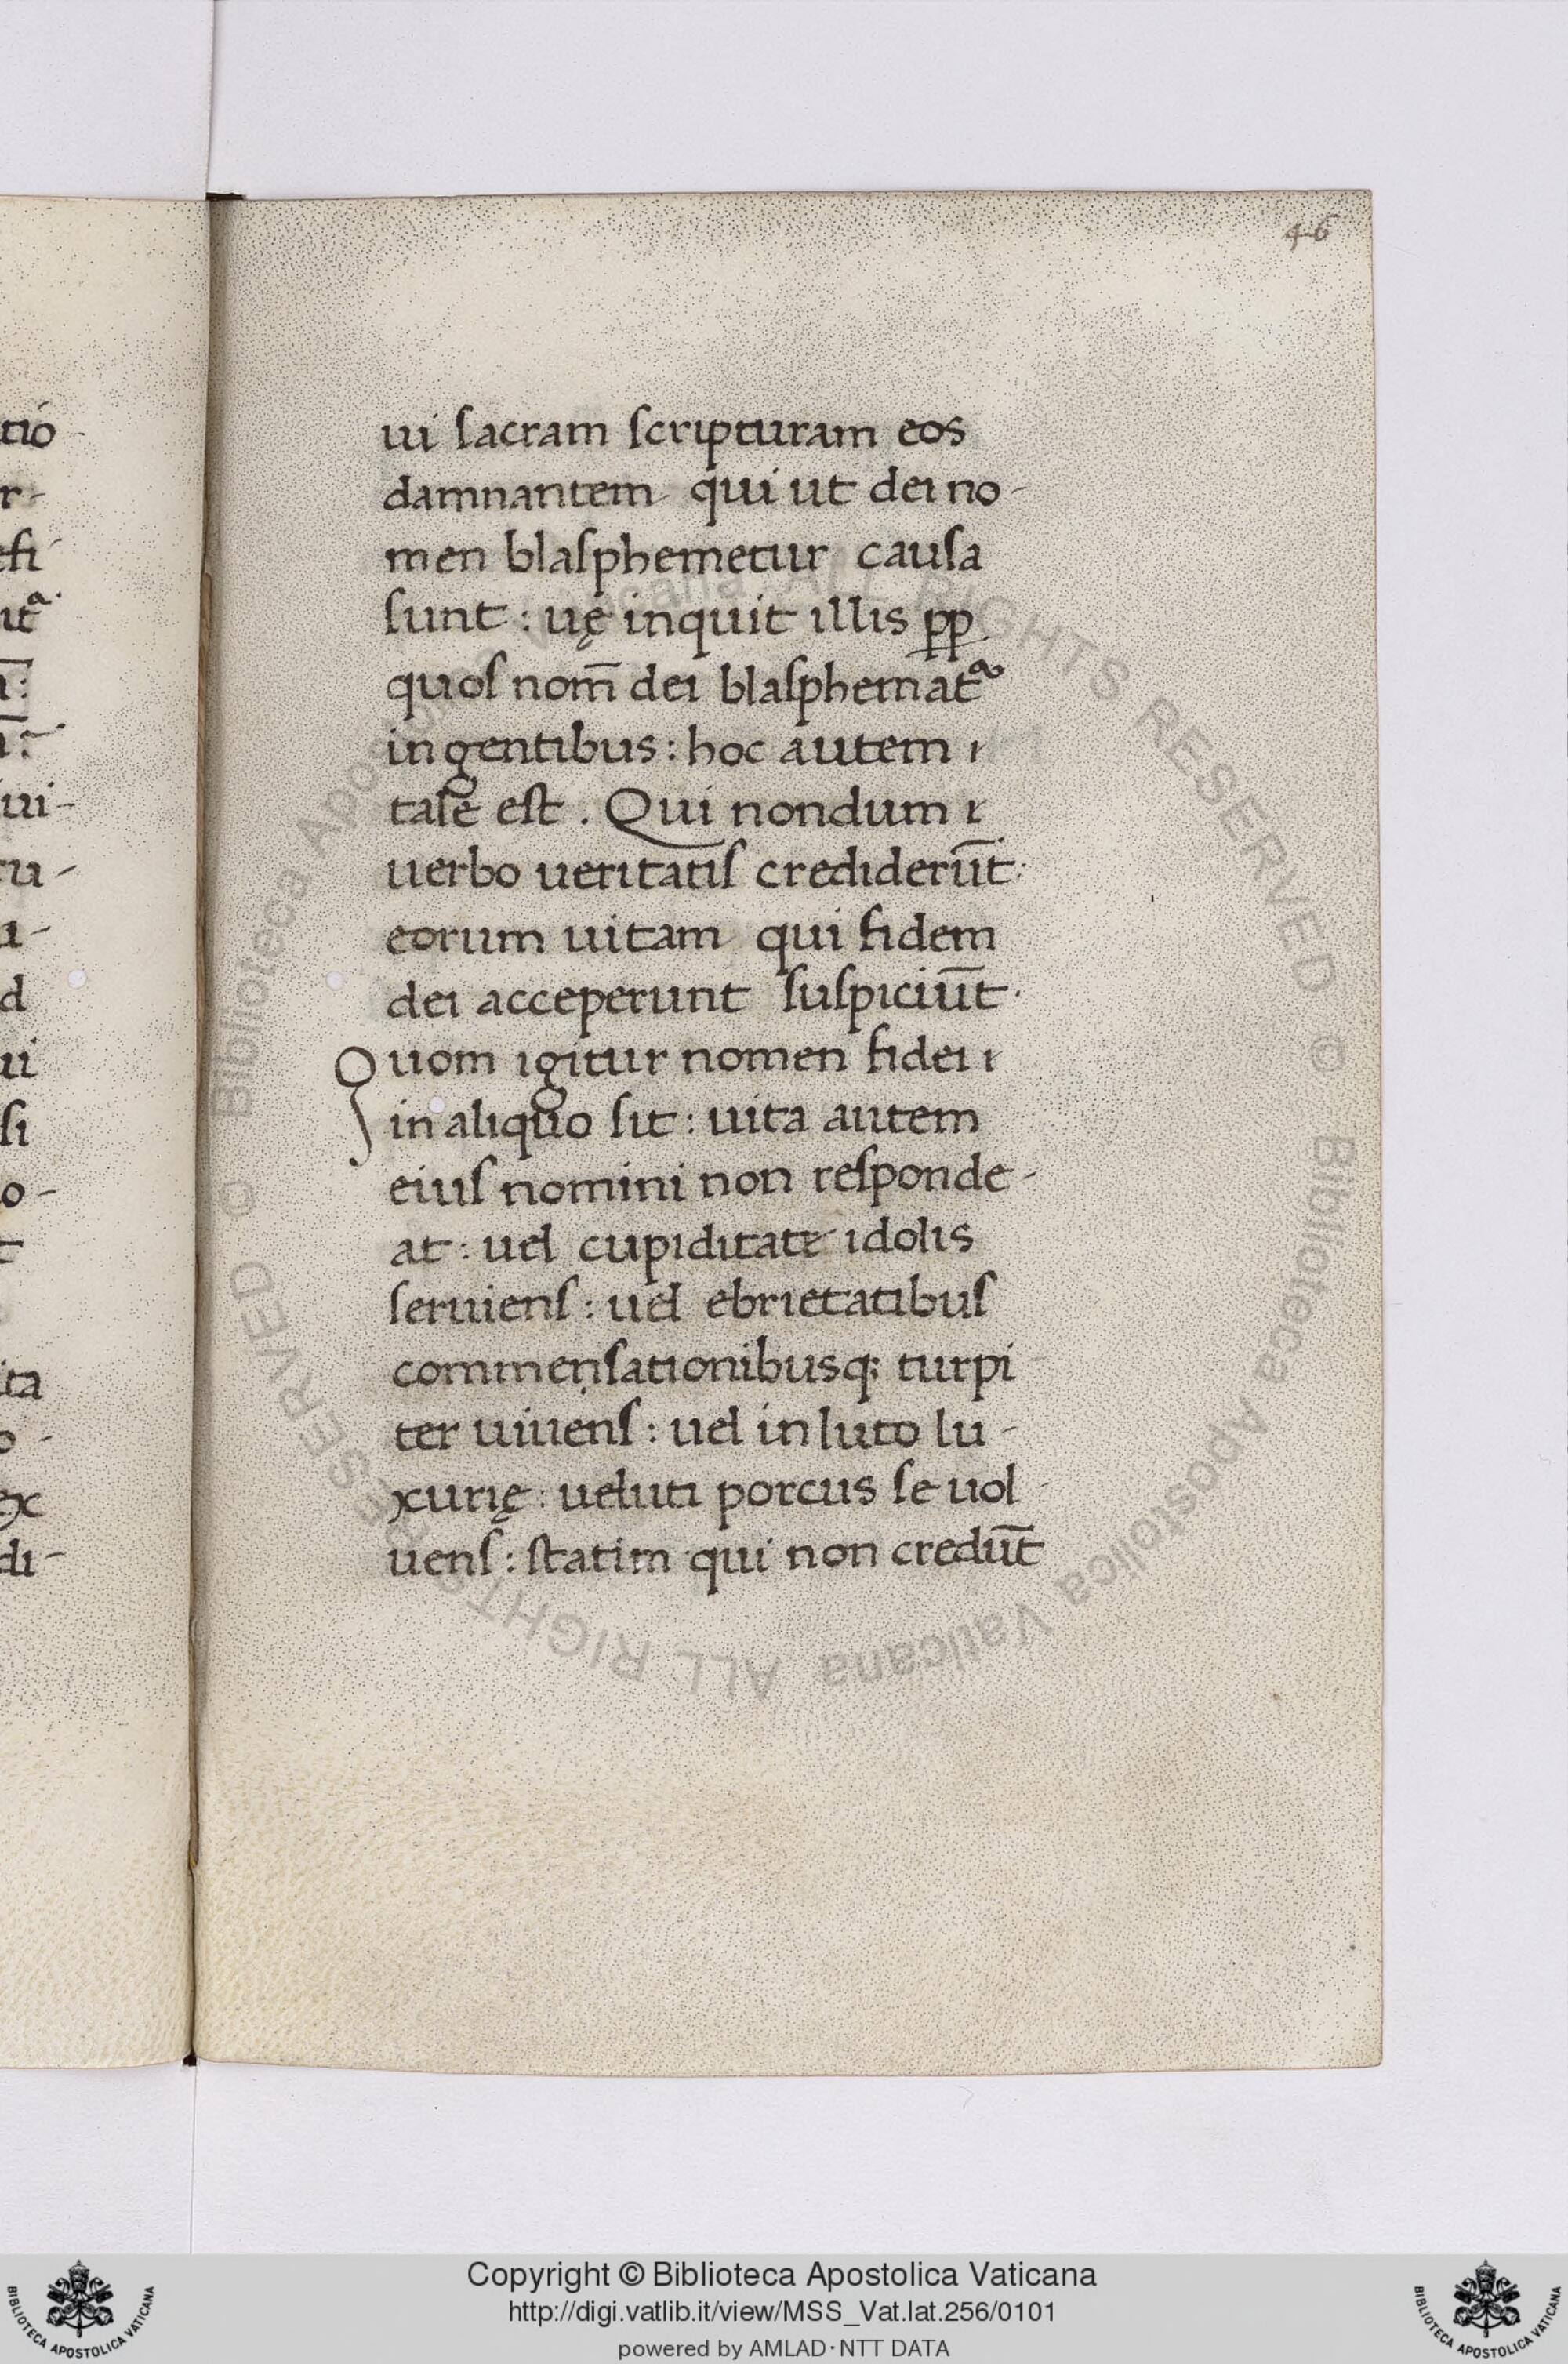 46
tió-
r-
efi-
utᵃ.
ā:
ā:
ui-
ru-
a-
d
ui
ſi
o-
t
ita
o-
ex
di-
ui ſacram ſcripturam eos
damnantem qui ut dei no-
men blaſphemetur cauſa
ſunt: uę inquit illis pp
quoſ nom̄ dei blaſphematᵃ
in gentibus: hoc autem ı
taſe eſt. Qui nondum ı
uerbo ueritatiſ crediderūt:
eorum uitam qui fidem
dei acceperunt ſuſpiciūt.
Quom igitur nomen fidei ı
in aliquo ſit: uita autem
eiuſ nomini non reſponde-
at: uel cupiditate idolis
ſeruienſ: uel ebrietatibuſ
commenſationibusq; turpi
ter uiuenſ: uel in luto lu-
xurię: ueluti porcus ſe uol-
uenſ: ſtatim qui non credūt
Biblioteca Apostolica Vaticana ALL RIGHTS RESERVED ©
Copyright © Biblioteca Apostolica Vaticana
http://digi.vatlib.it/view/MSS_Vat.lat.256/0101
powered by AMLAD·NTT DATA
BIBLIOTECA APOSTOLICA VATICANA
BIBLIOTECA APOSTOLICA VATICANA